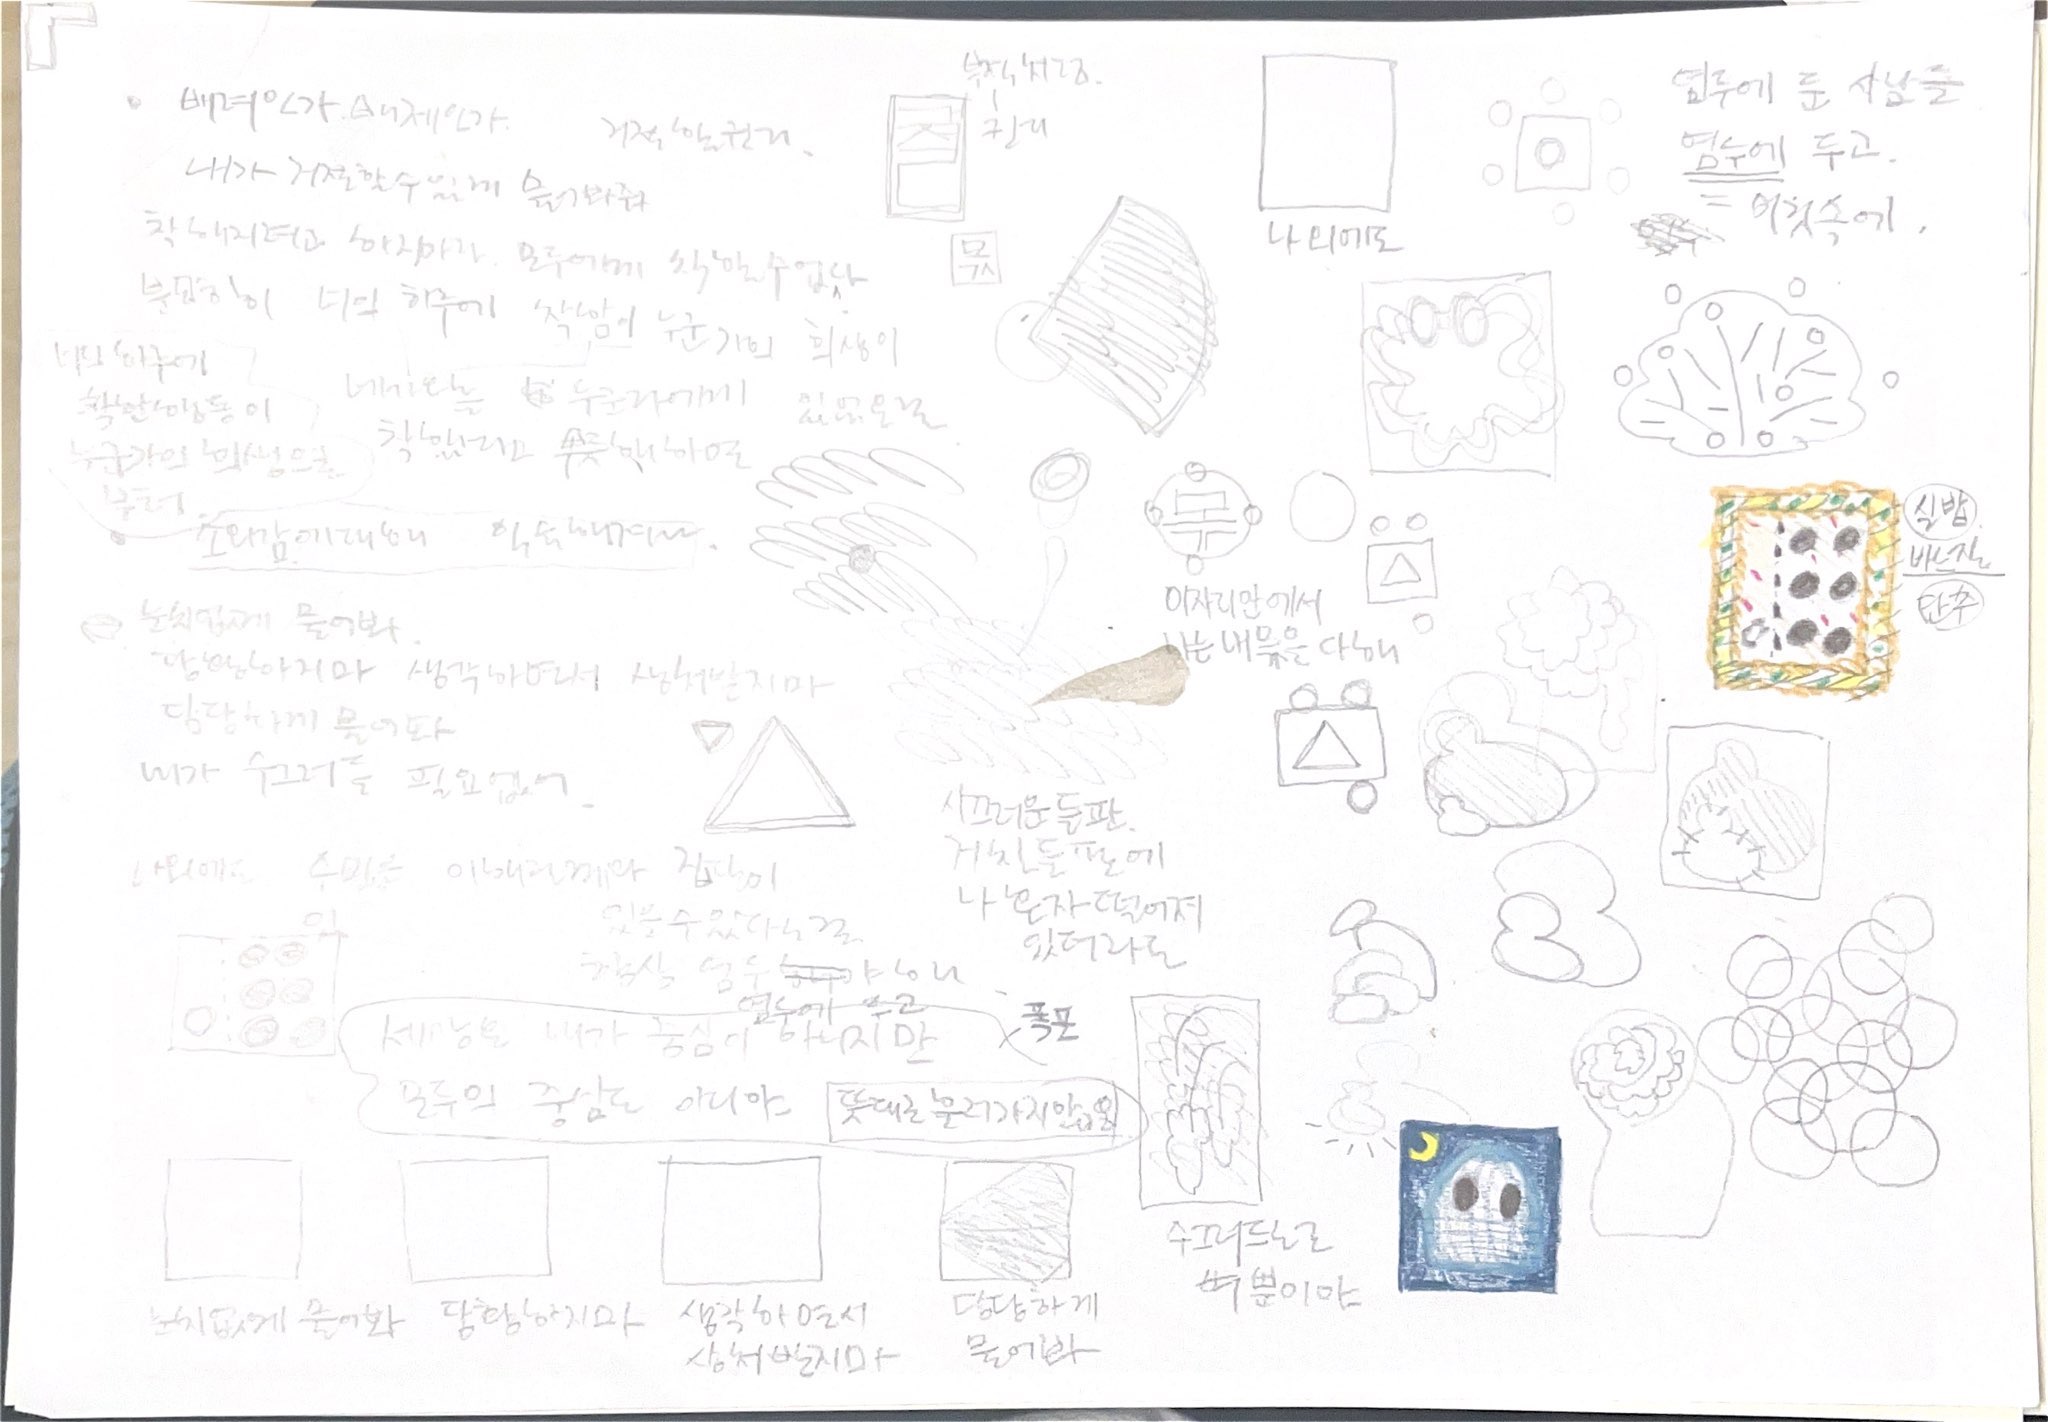 배려인가. 숙제인가.
거절할 권리.
내가 거절할 수 있게 물어봐줘
착해지려고 하지마라. 모두에게 착할 수 없다
너의 하루에 착함이 누군가의 희생이
있음으로
너의 하루에
착한 행동이
누군가의 희생으로
누군가에게
착했다고 뿌듯해하면
소외감에 대해 익숙해져라.
눈치없게 물어봐.
당황하지마 생각하면서 상처받지마
담담하게 물어봐
네가 수그러들 필요없어.
나외에도 수많은 이해관계와 집단이
있을 수 있다는 걸
항상 염두 해
염두에 두고
세상은 내가 중심이 아니지만
모두의 중심도 아니야
뜻대로 흘러가지 않음을
폭포
눈치없게 물어봐
당황하지마
생각하면서
상처받지마
담담하게
물어봐
권리
몫
나 외에도
염두에 둔 사람들
염두에 두고.
= 머릿속에.
실밥
바느질
단추
이 자리 안에서
나는 내 몫을 다해
시끄러운 들판.
거친 들판에
나 혼자 떨어져
있더라도
수그러드는 건
벼 뿐이야